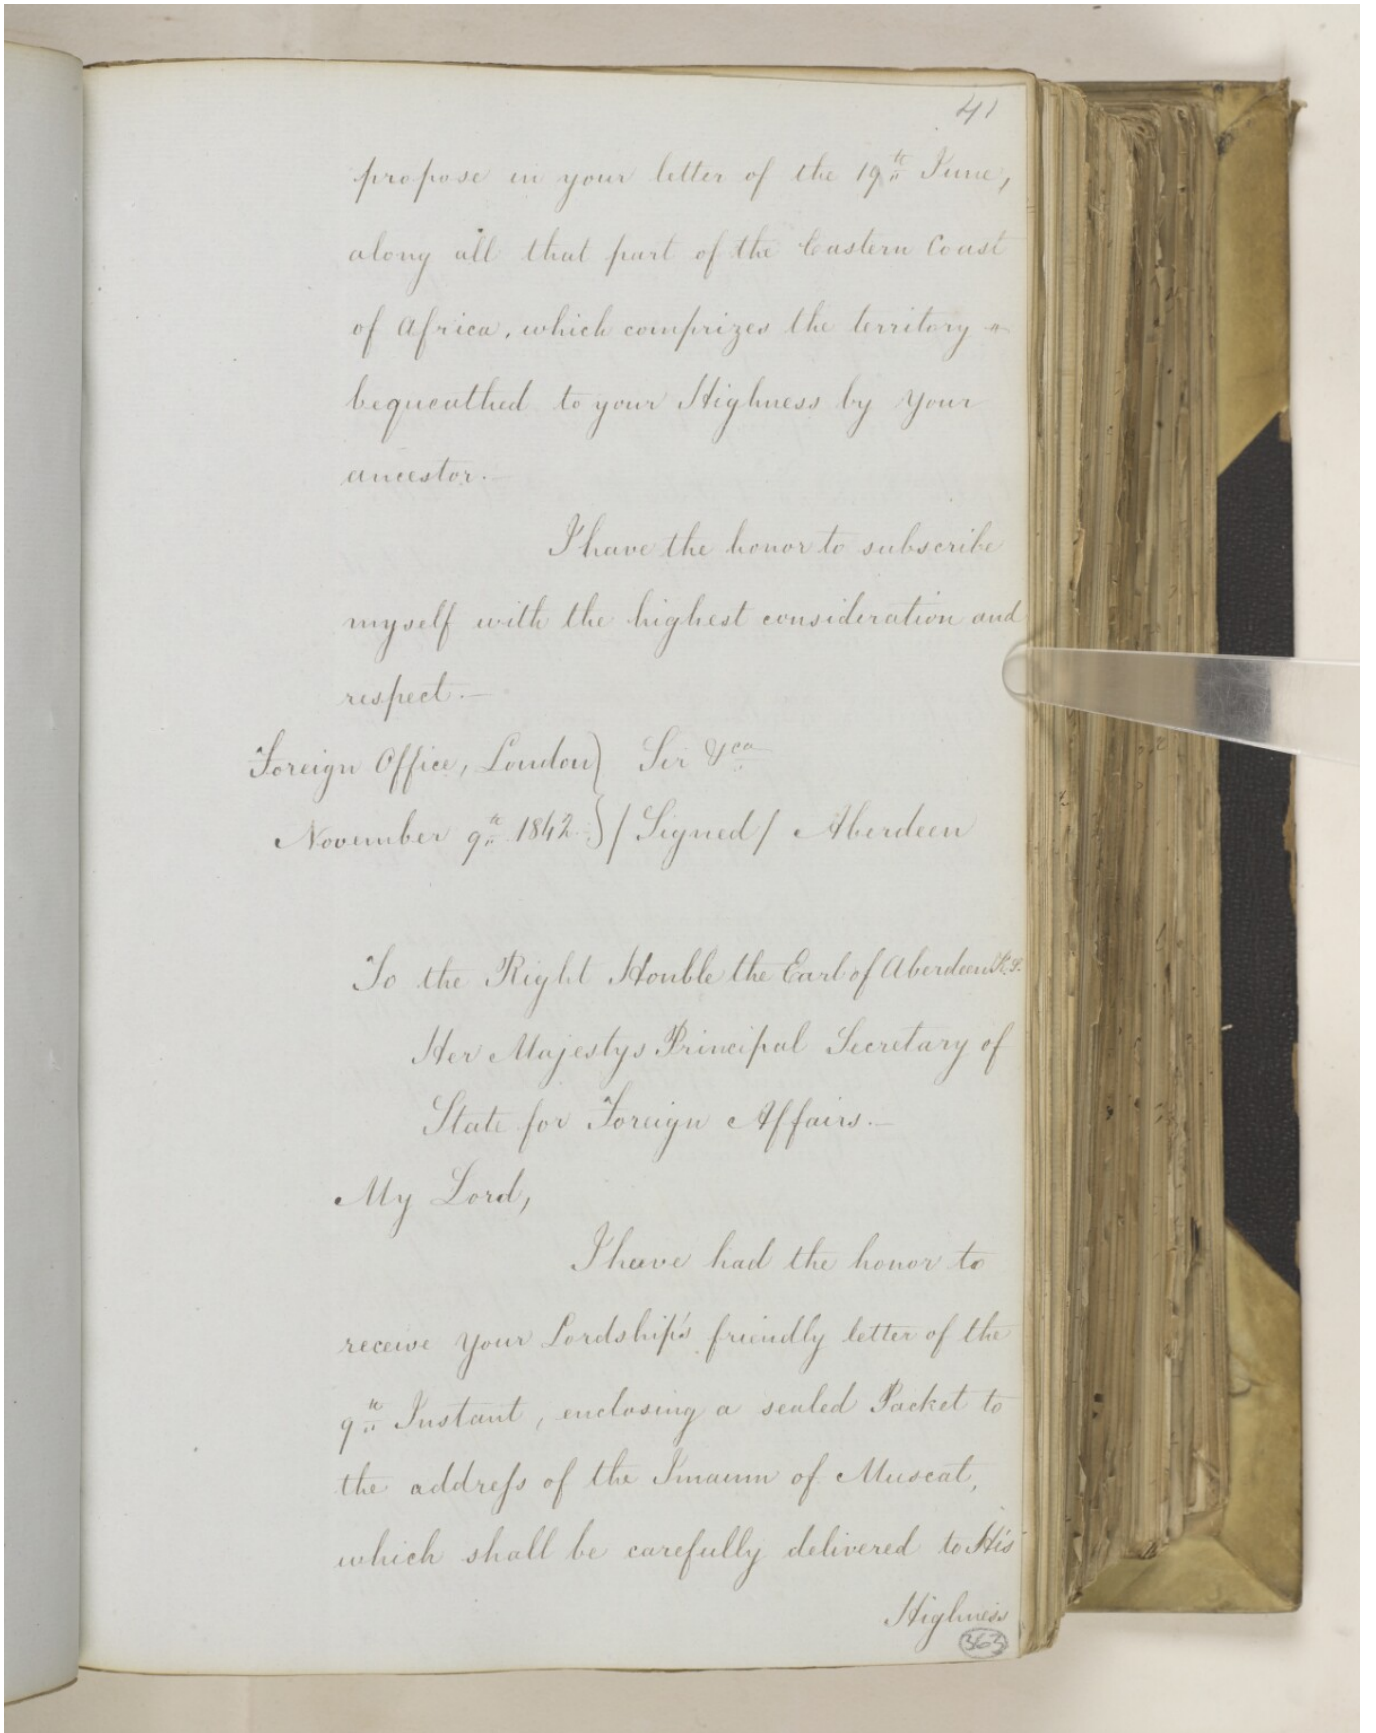 41
propose in your letter of the 19th June,
along all that part of the Eastern Coast
of Africa, which comprizes the territory "
bequeathed to your Highness by your
ancestor.—
I have the honor to subscribe
myself with the highest consideration and
respect.—
Foreign Office, London } Sir &ca
November 9th 1842. } /Signed/ Aberdeen
To the Right Honble the Earl of Aberdeen K.T.
Her Majestys Principal Secretary of
State for Foreign Affairs.—
My Lord,
I have had the honor to
receive your Lordship's friendly letter of the
9th Instant, enclosing a sealed Packet to
the addreſs of the Imaum of Muscat,
which shall be carefully delivered to His
Highness
363